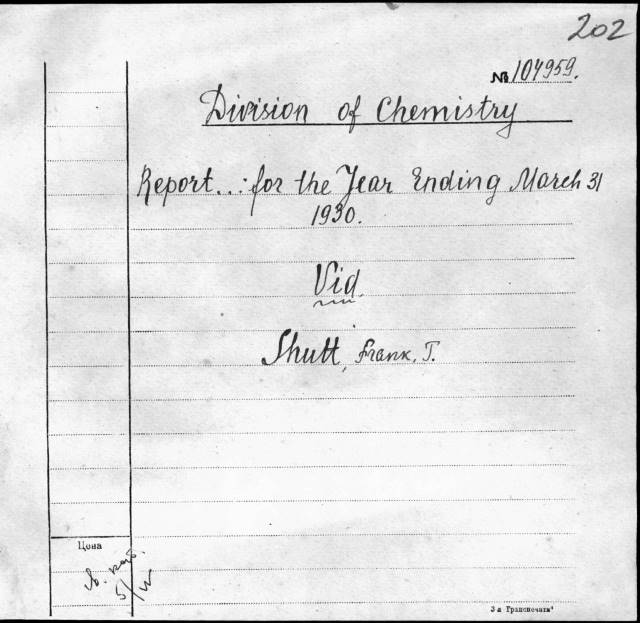 202
№ 104959.
Division of Chemistry
Report...: for the Year Ending March 31
1930.
Vid.
Shutt, Frank, T.
Цена
5/IV
3-я Транспечать